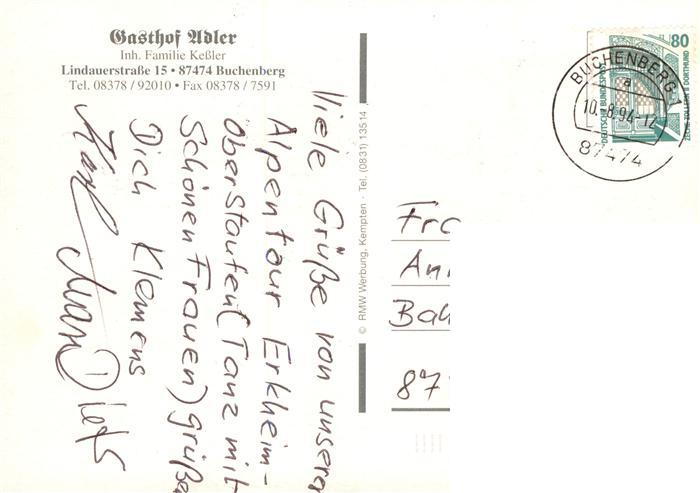 Gasthof Adler
Inh. Familie Keßler
Lindauerstraße 15 • 87474 Buchenberg
Tel. 08378 / 92010 • Fax 08378 / 7591
Viele Grüße von unserer
Alpentour Erkheim-
Oberstaufen (Tanz mit
Schönen Frauen) grüßen
Dich Klemens
© RMW Werbung, Kempten · Tel. (0831) 13514
80
DEUTSCHE BUNDESPOST
ZECHE ZOLLERN II DORTMUND
BUCHENBERG 1
a
10.-8.94-12
87474
Fra
Ann
Bah
87